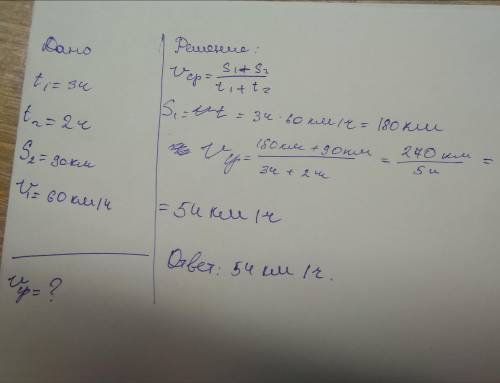 Дано
t₁=3ч
t₂=2ч
S₂=90км
V₁=60км/ч
Vср=?
Решение:
Vср = (S₁+S₂)/(t₁+t₂)
S₁= = 3ч·60км/ч = 180км
Vср = (180км+90км)/(3ч+2ч) = 270км/5ч =
= 54км/ч
Ответ: 54км/ч.